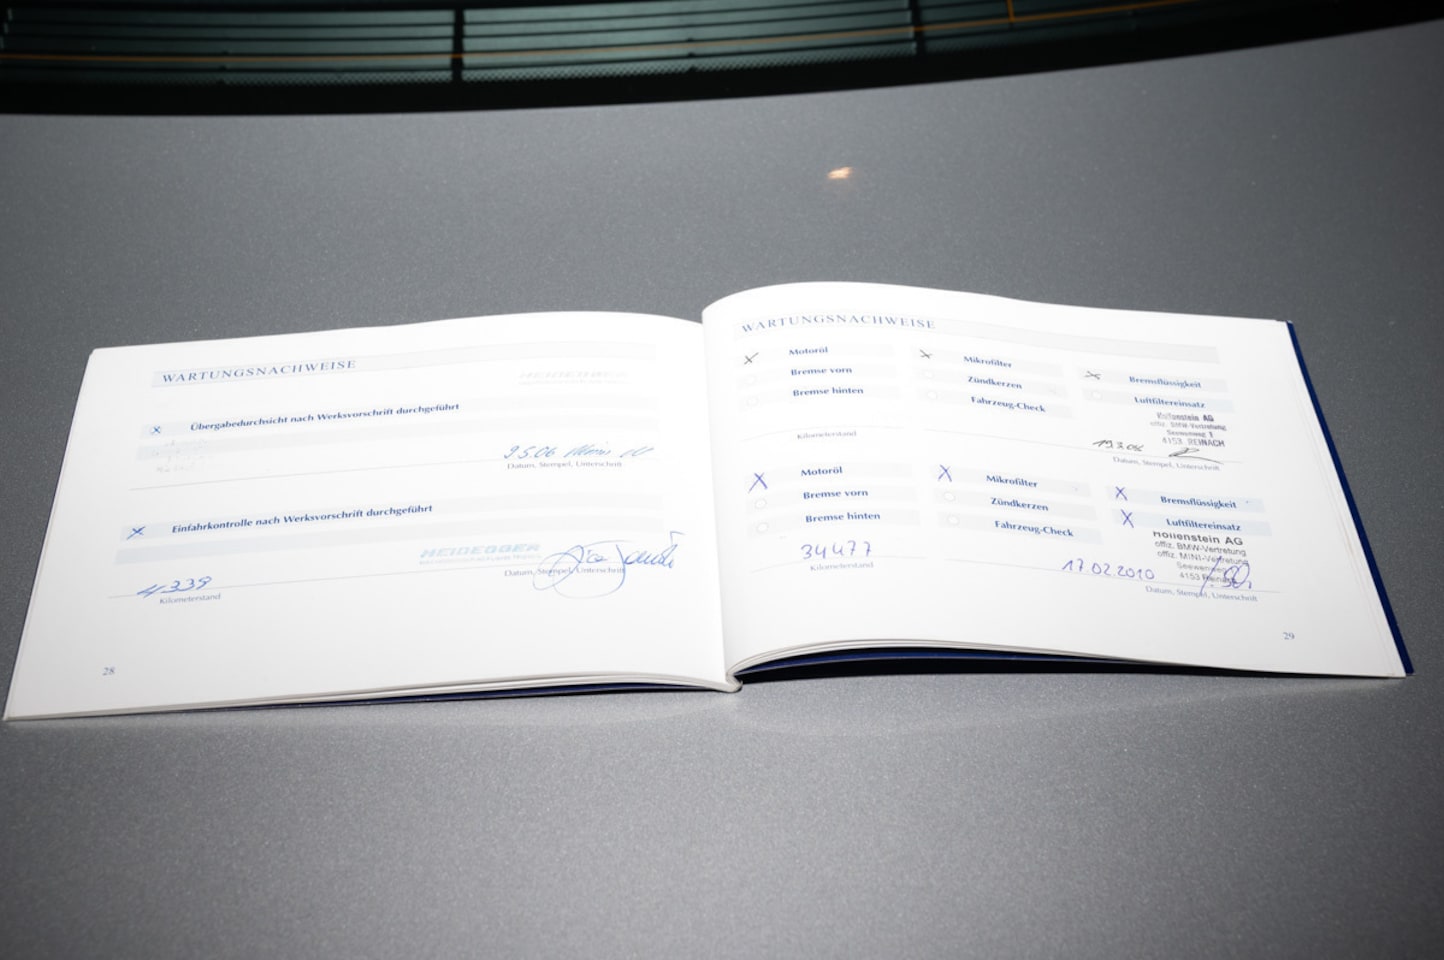 WARTUNGSNACHWEISE
HEIDEGGER
Übergabedurchsicht nach Werksvorschrift durchgeführt
9 5.06
Datum, Stempel, Unterschrift
Einfahrkontrolle nach Werksvorschrift durchgeführt
HEIDEGGER
4339
Kilometerstand
Datum, Stempel, Unterschrift
28
WARTUNGSNACHWEISE
Motoröl
Bremse vorn
Bremse hinten
Kilometerstand
Mikrofilter
Zündkerzen
Fahrzeug-Check
Bremsflüssigkeit
Luftfiltereinsatz
Hollenstein AG
offiz. BMW-Vertretung
Seewenweg 1
4153 REINACH
Datum, Stempel, Unterschrift
Motoröl
Bremse vorn
Bremse hinten
34477
Kilometerstand
Mikrofilter
Zündkerzen
Fahrzeug-Check
Bremsflüssigkeit
Luftfiltereinsatz
Hollenstein AG
offiz. BMW-Vertretung
offiz. MINI-Vertretung
4153 Reinach
17.02.2010
Datum, Stempel, Unterschrift
29